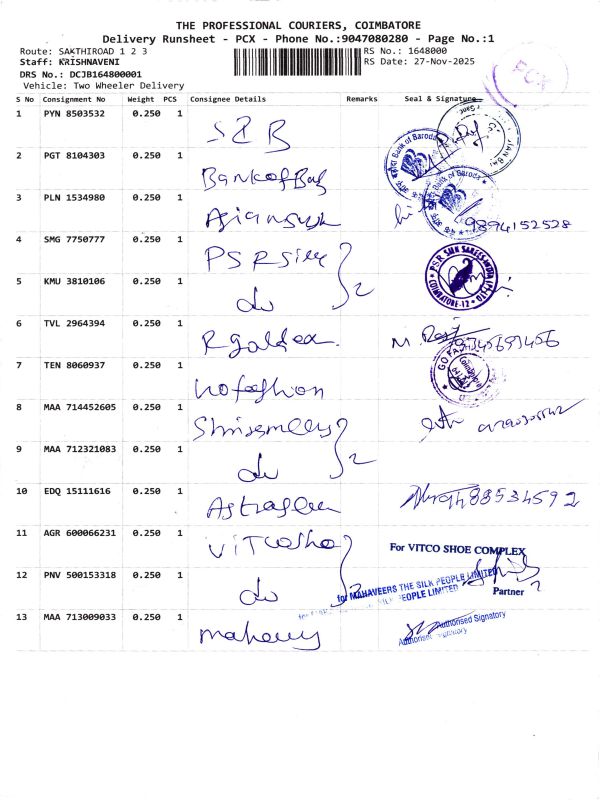 THE PROFESSIONAL COURIERS, COIMBATORE
Delivery Runsheet - PCX - Phone No.:9047080280 - Page No.:1
Route: SAKTHIROAD 1 2 3
RS No.: 1648000
Staff: KRISHNAVENI
RS Date: 27-Nov-2025
PCX
DRS No.: DCJB164800001
Vehicle: Two Wheeler Delivery
S No Consignment No Weight PCS Consignee Details Remarks Seal & Signature
1 PYN 8503532 0.250 1 S I B
2 PGT 8104303 0.250 1 Bank of Bag Bank of Baroda
3 PLN 1534980 0.250 1 Bank of Baroda 9894152528
4 SMG 7750777 0.250 1 PSR Silk PSR SILK SAREES INDIA (P) LTD COIMBATORE-12
5 KMU 3810106 0.250 1 do 2
6 TVL 2964394 0.250 1 R goldex M.
7 TEN 8060937 0.250 1 Go fashion GO FA
8 MAA 714452605 0.250 1
9 MAA 712321083 0.250 1 do 2
10 EDQ 15111616 0.250 1 88534592
11 AGR 600066231 0.250 1 VITCO Sho For VITCO SHOE COMPLEX
12 PNV 500153318 0.250 1 do 2 Partner
for MAHAVEERS THE SILK PEOPLE LIMITED
PEOPLE LIMITED
13 MAA 713009033 0.250 1 Authorised Signatory
Authorised Signatory